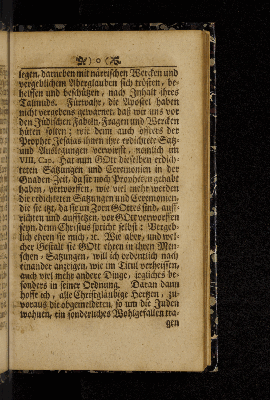 ) o (
legen, darneben mit närrischen Wercken und
vergeblichem Aberglauben sich trösten, be-
helffen und beschützen, nach Inhalt ihres
Talmuds. Fürwahr, die Apostel haben
nicht vergebens gewarnet, daß wir uns vor
den Jüdischen Fabeln, Fragen und Wercken
hüten solten; wie dann auch öffters der
Prophet Jesaias ihnen ihre erdichtete Satz-
und Auslegungen verwirfft, nemlich am
VIII. Cap. Hat nun GOtt dieselben erdich-
teten Satzungen und Ceremonien in der
Gnaden-Zeit, da sie noch Propheten gehabt
haben, verworffen, wie viel mehr werden
die erdichteten Satzungen und Ceremonien,
die sie itzt, da sie im Zorn GOttes sind, auff-
richten und auffsetzen, vor GOtt verworffen
seyn, denn Christus spricht selbst: Vergeb-
lich ehren sie mich, ꝛc. Wie aber, und wel-
cher Gestalt sie GOtt ehren in ihren Men-
schen-Satzungen, will ich ordentlich nach
einander anzeigen, wie im Titul verheissen,
auch viel mehr andere Dinge, jegliches be-
sonders in seiner Ordnung. Daran dann
hoffe ich, alle Christgläubige Hertzen, zu-
voraus die abgemeldeten, so um die Juden
wohnen, ein sonderliches Wohlgefallen tra-
gen